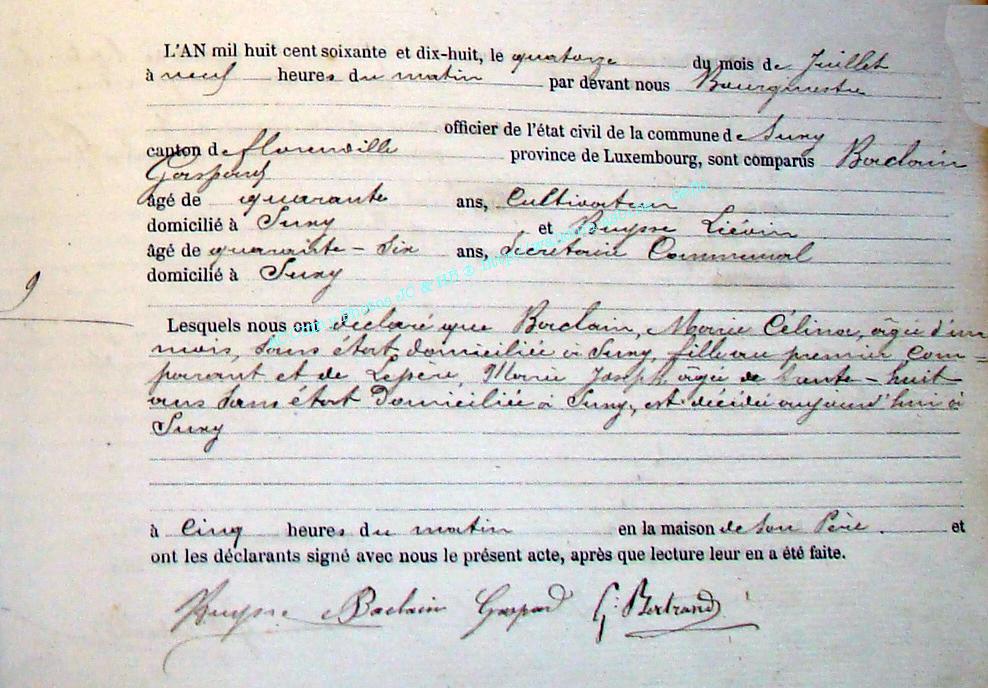 L'AN mil huit cent soixante et dix-huit, le quatorze du mois de Juillet
à neuf heures du matin par devant nous Bourgmestre
officier de l'état civil de la commune de Suxy
canton de florenville province de Luxembourg, sont comparus Baclain
Gaspard
âgé de quarante ans, Cultivateur
domicilié à Suxy et Buysse Liévin
âgé de quarante-six ans, Secrétaire Communal
domicilié à Suxy
9
Lesquels nous ont déclaré que Baclain, Marie Célina, âgée d'un
mois, sans état domiciliée à Suxy, fille au premier Com=
parant et de Lepère, Marie Joseph âgée de trente-huit
ans sans état Domiciliée à Suxy, est décédée aujourd'hui à
Suxy
à Cinq heures du matin en la maison de son Père. et
ont les déclarants signé avec nous le présent acte, après que lecture leur en a été faite.
Buysse Baclain Gaspard G. Bertrand